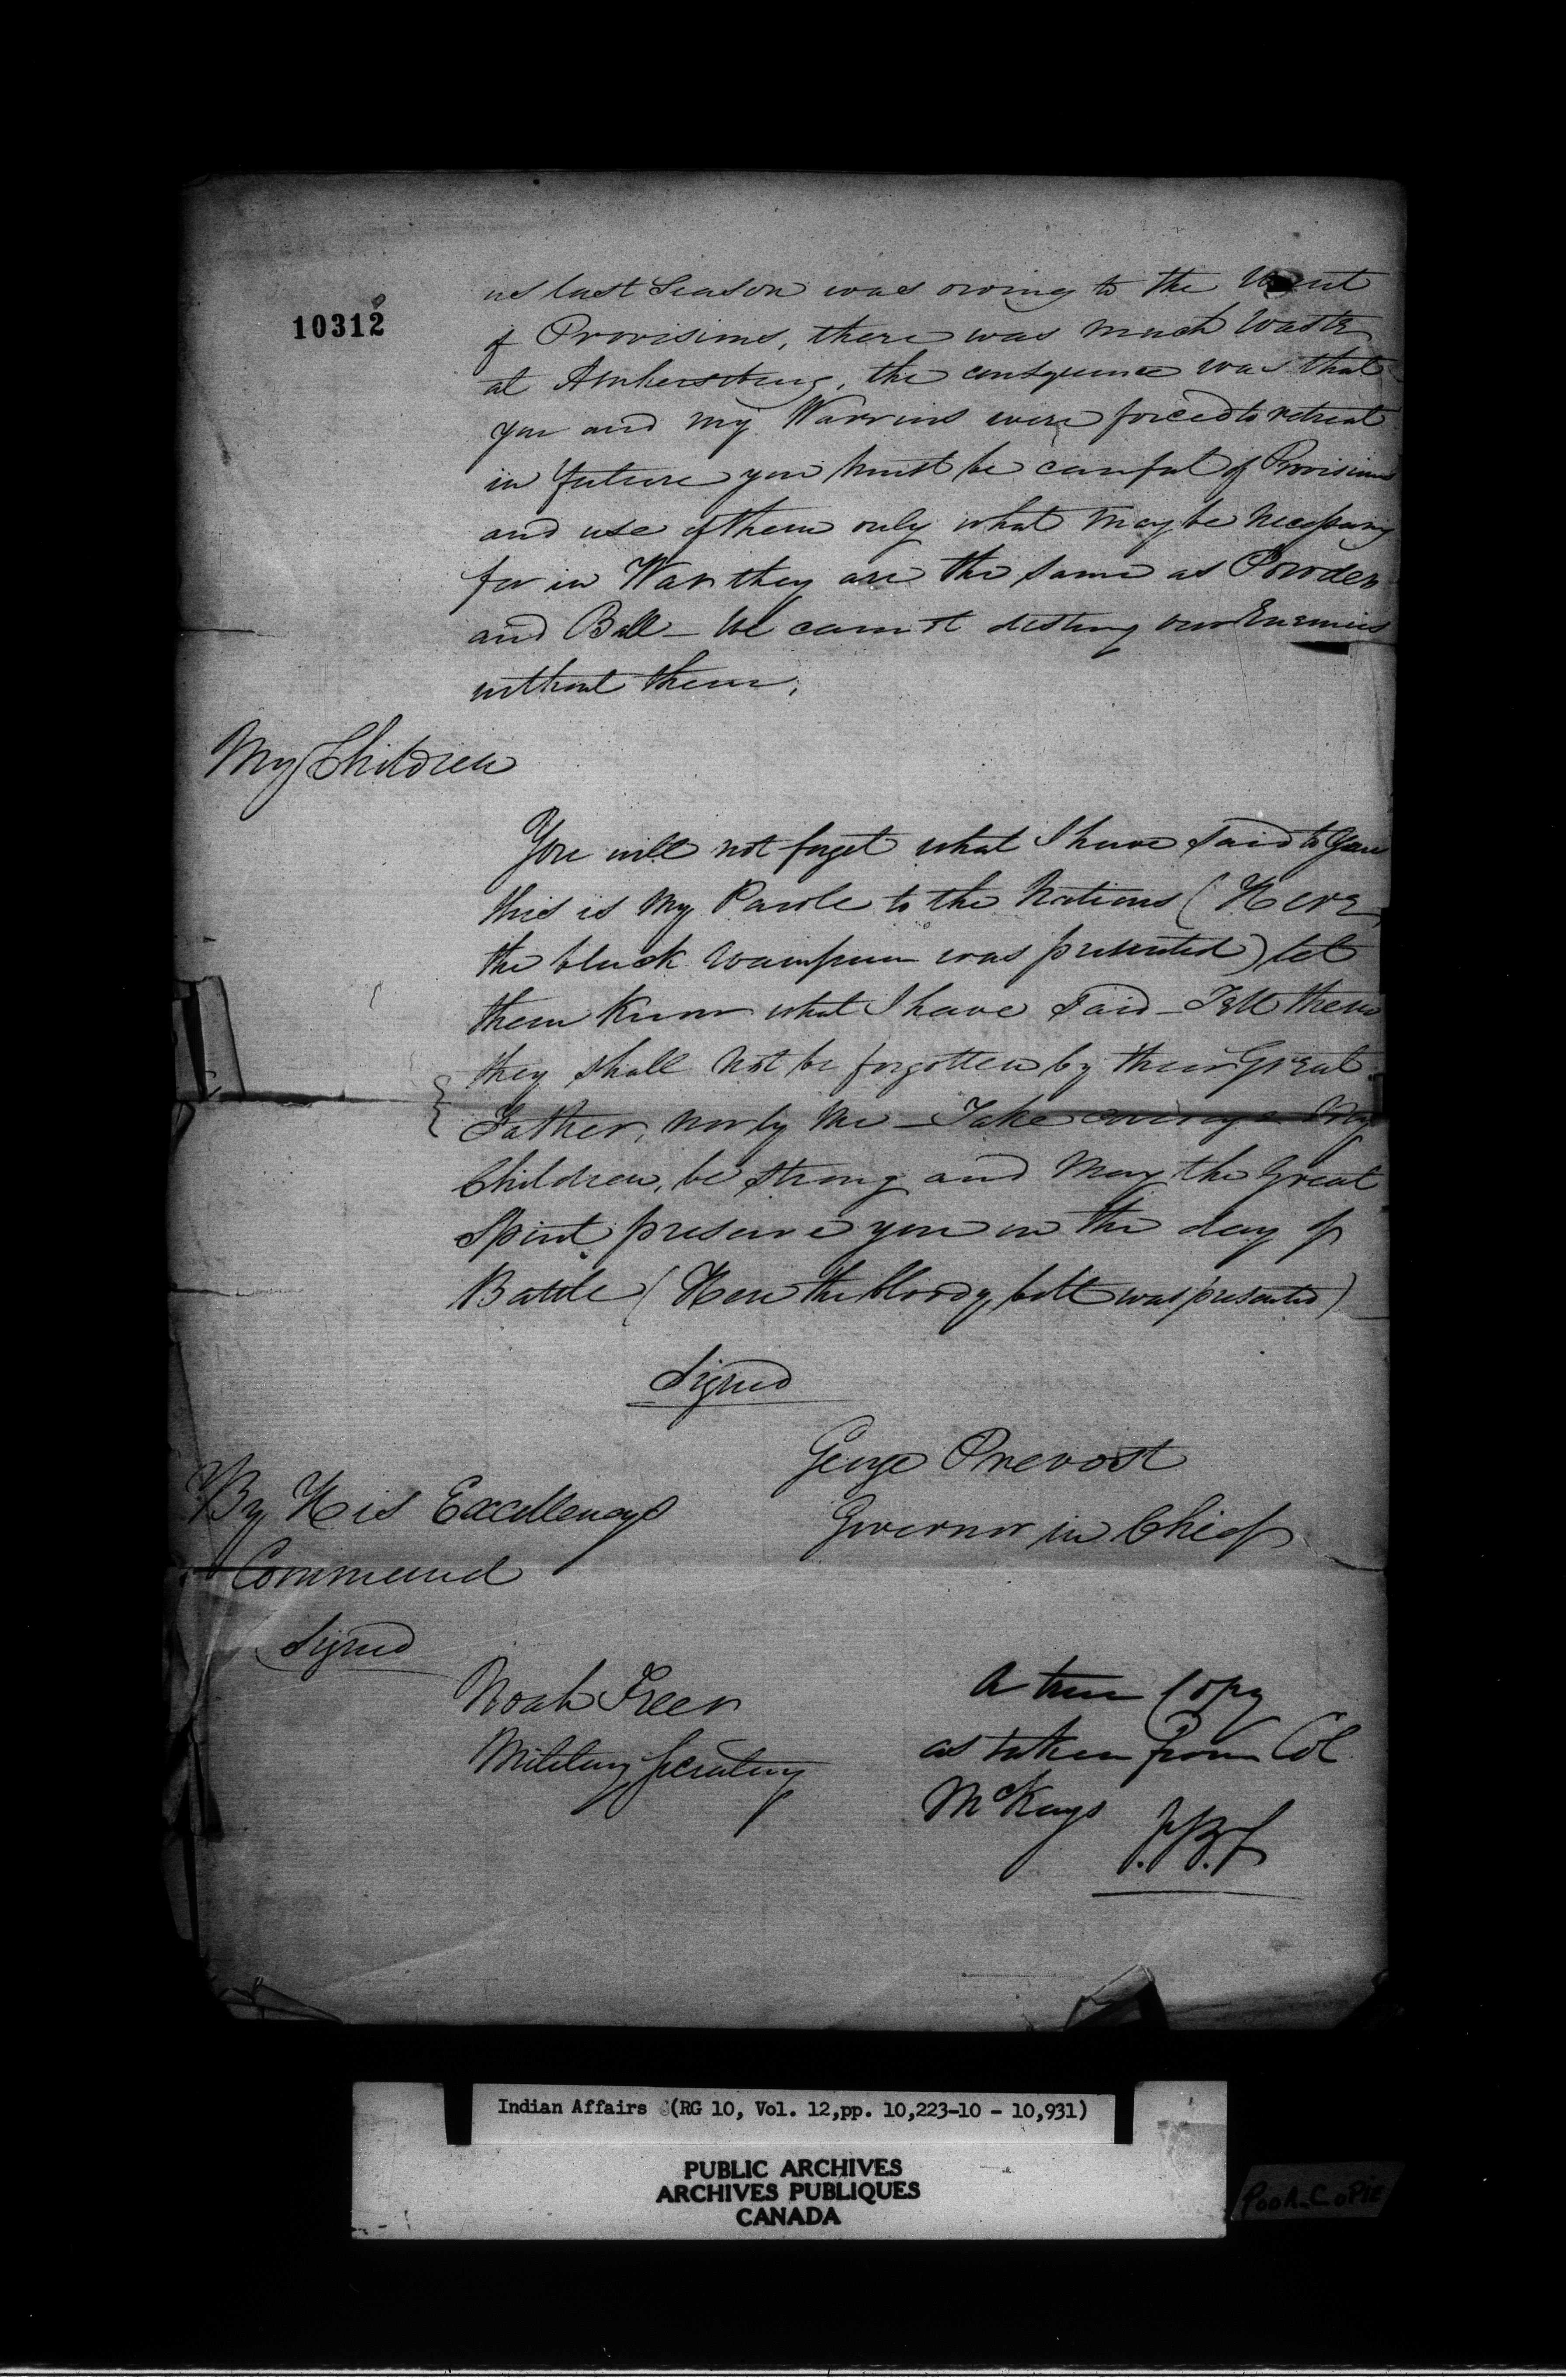 10312
us last Season was owing to the Want
of Provisions, there was much Waste
at Amherstburg, the consequence was that
you and my Warriors were forced to retreat
in future you must be careful of Provisions
and use of them only what may be necessary
for in War they are the same as Powder
and Ball – We cannot destroy our Enemies
without them.
My Children
You will not forget what I have said to you
this is my Parole to the Nations (Here
the black Wampum was presented) let
them know what I have said – Tell them
they shall not be forgotten by their Great
Father, nor by me – Take courage My
Children, be strong and May the Great
Spirit preserve you in the day of
Battle (Here the bloody belt was presented)
Signed
George Prevost
Governor in Chief
By His Excellencys
Command
Signed
Noah Freer
Military Secretary
A true Copy
as taken from Col
McKays
Indian Affairs (RG 10, Vol. 12, pp. 10,223-10 - 10,931)
PUBLIC ARCHIVES
ARCHIVES PUBLIQUES
CANADA
POOR COPIE